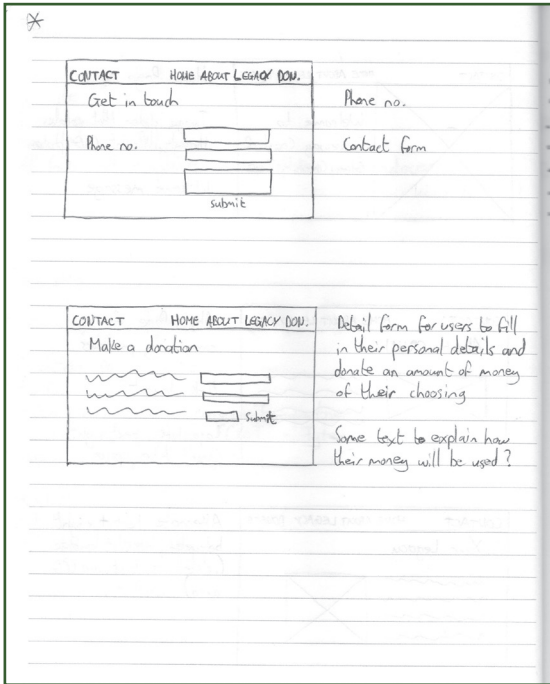 CONTACT HOME ABOUT LEGACY DON.
Get in touch
Phone no.
submit
Phone no.
Contact form
CONTACT HOME ABOUT LEGACY DON.
Make a donation
Submit
Detail form for users to fill
in their personal details and
donate an amount of money
of their choosing
Some text to explain how
their money will be used?